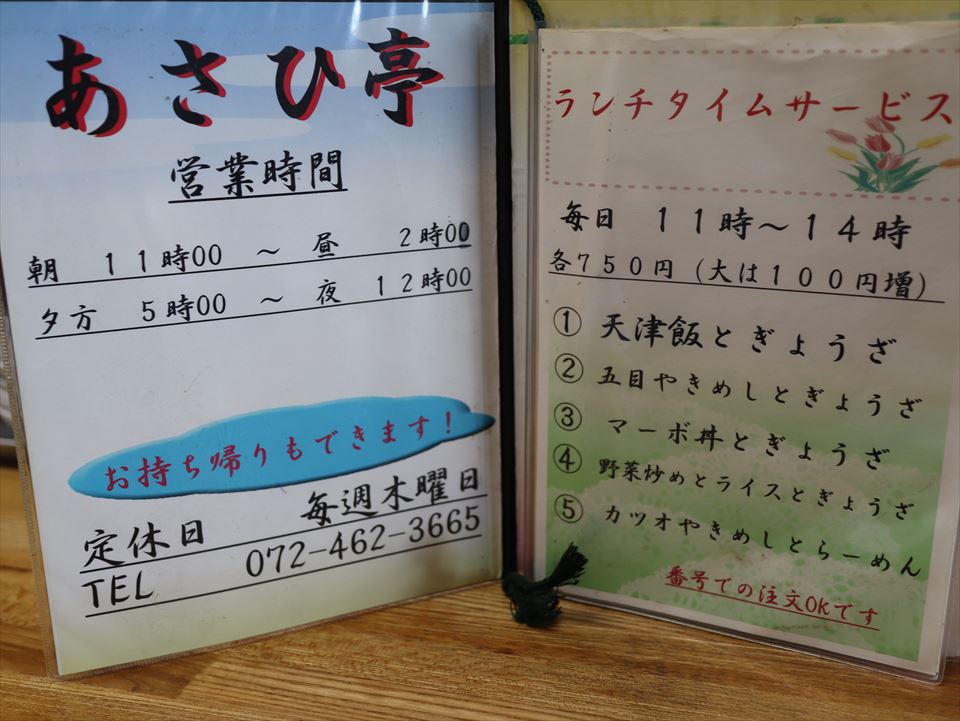 あさひ亭
営業時間
朝 11時00 ～ 昼 2時00
夕方 5時00 ～ 夜 12時00
お持ち帰りもできます!
定休日 毎週木曜日
TEL 072-462-3665
ランチタイムサービス
毎日 11時～14時
各750円(大は100円増)
① 天津飯とぎょうざ
② 五目やきめしとぎょうざ
③ マーボ丼とぎょうざ
④ 野菜炒めとライスとぎょうざ
⑤ カツオやきめしとらーめん
番号での注文OKです